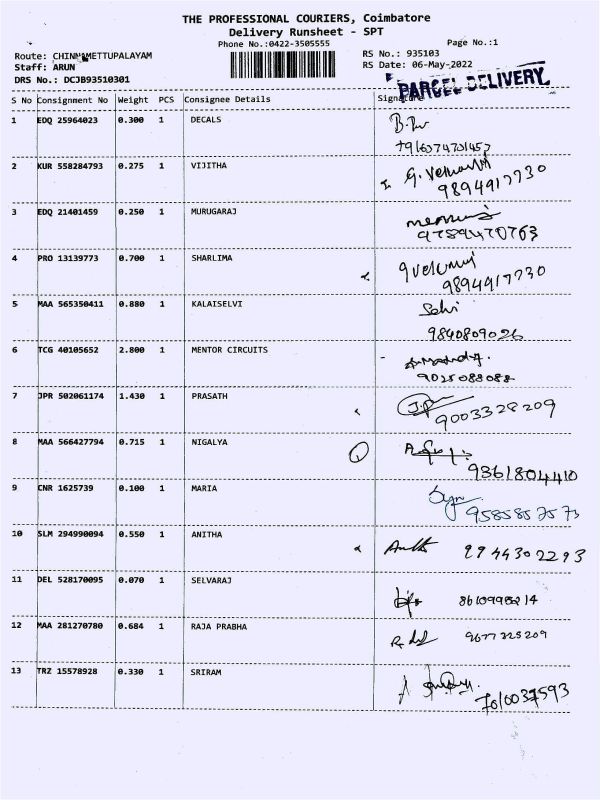 THE PROFESSIONAL COURIERS, Coimbatore
Delivery Runsheet - SPT
Phone No.:0422-3505555
Page No.:1
Route: CHINNAMETTUPALAYAM
RS No.: 935103
Staff: ARUN
RS Date: 06-May-2022
DRS No.: DCJB93510301
PARCEL DELIVERY
S No Consignment No Weight PCS Consignee Details Signature
1 EDQ 25964023 0.300 1 DECALS
2 KUR 558284793 0.275 1 VIJITHA
9894917730
3 EDQ 21401459 0.250 1 MURUGARAJ
9789470763
4 PRO 13139773 0.700 1 SHARLIMA
9894917730
5 MAA 565350411 0.880 1 KALAISELVI
Selvi
9840809026
6 TCG 40105652 2.800 1 MENTOR CIRCUITS
9025088088
7 JPR 502061174 1.430 1 PRASATH
9003328209
8 MAA 566427794 0.715 1 NIGALYA
9361804410
9 CNR 1625739 0.100 1 MARIA
9585857573
10 SLM 294990094 0.550 1 ANITHA
9944302293
11 DEL 528170095 0.070 1 SELVARAJ
12 MAA 281270780 0.684 1 RAJA PRABHA
9677328209
13 TRZ 15578928 0.330 1 SRIRAM